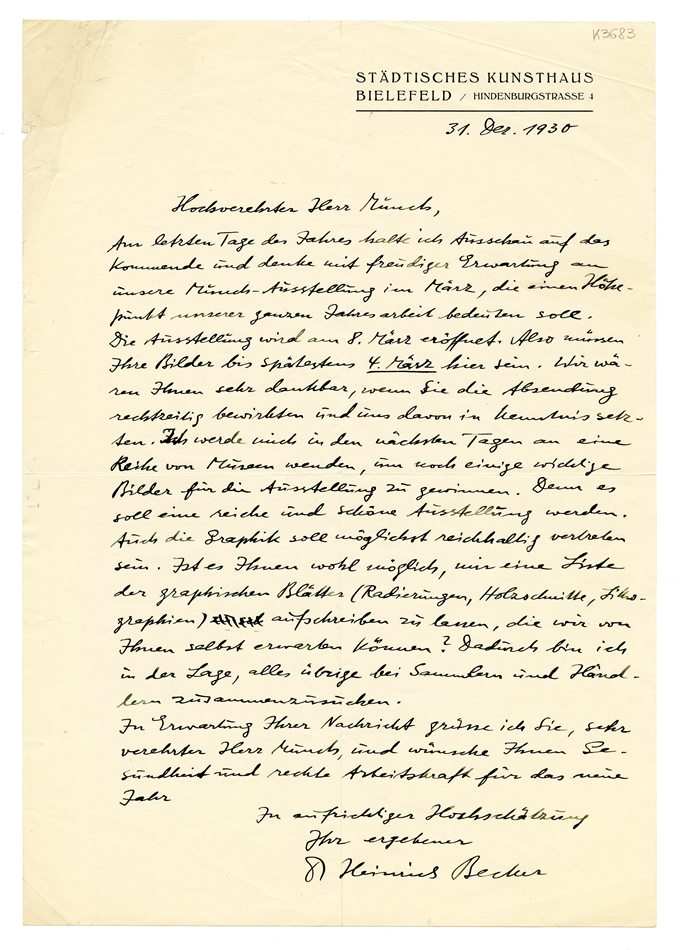 K3683
STÄDTISCHES KUNSTHAUS
BIELEFELD / HINDENBURGSTRASSE 4
31. Dez. 1930
Hochverehrter Herr Munch,
Am letzten Tage des Jahres halte ich Ausschau auf das
Kommende und denke mit freudiger Erwartung an
unsere Munch-Ausstellung im März, die einen Höhe-
punkt unserer ganzen Jahresarbeit bedeuten soll.
Die Ausstellung wird am 8. März eröffnet. Also müssen
Ihre Bilder bis spätestens 4. März hier sein. Wir wä-
ren Ihnen sehr dankbar, wenn Sie die Absendung
rechtzeitig bewirkten und uns davon in Kenntnis setz-
ten. Ich werde mich in den nächsten Tagen an eine
Reihe von Museen wenden, um noch einige wichtige
Bilder für die Ausstellung zu gewinnen. Denn es
soll eine reiche und schöne Ausstellung werden.
Auch die Graphik soll möglichst reichhaltig vertreten
sein. Ist es Ihnen wohl möglich, mir eine Liste
der graphischen Blätter (Radierungen, Holzschnitte, Litho-
graphien) aufschreiben zu lassen, die wir von
Ihnen selbst erwarten können? Dadurch bin ich
in der Lage, alles übrige bei Sammlern und Händ-
lern zusammenzusuchen.
In Erwartung Ihrer Nachricht grüsse ich Sie, sehr
verehrter Herr Munch, und wünsche Ihnen Ge-
sundheit und rechte Arbeitskraft für das neue
Jahr
In aufrichtiger Hochschätzung
Ihr ergebener
Dr Heinrich Becker